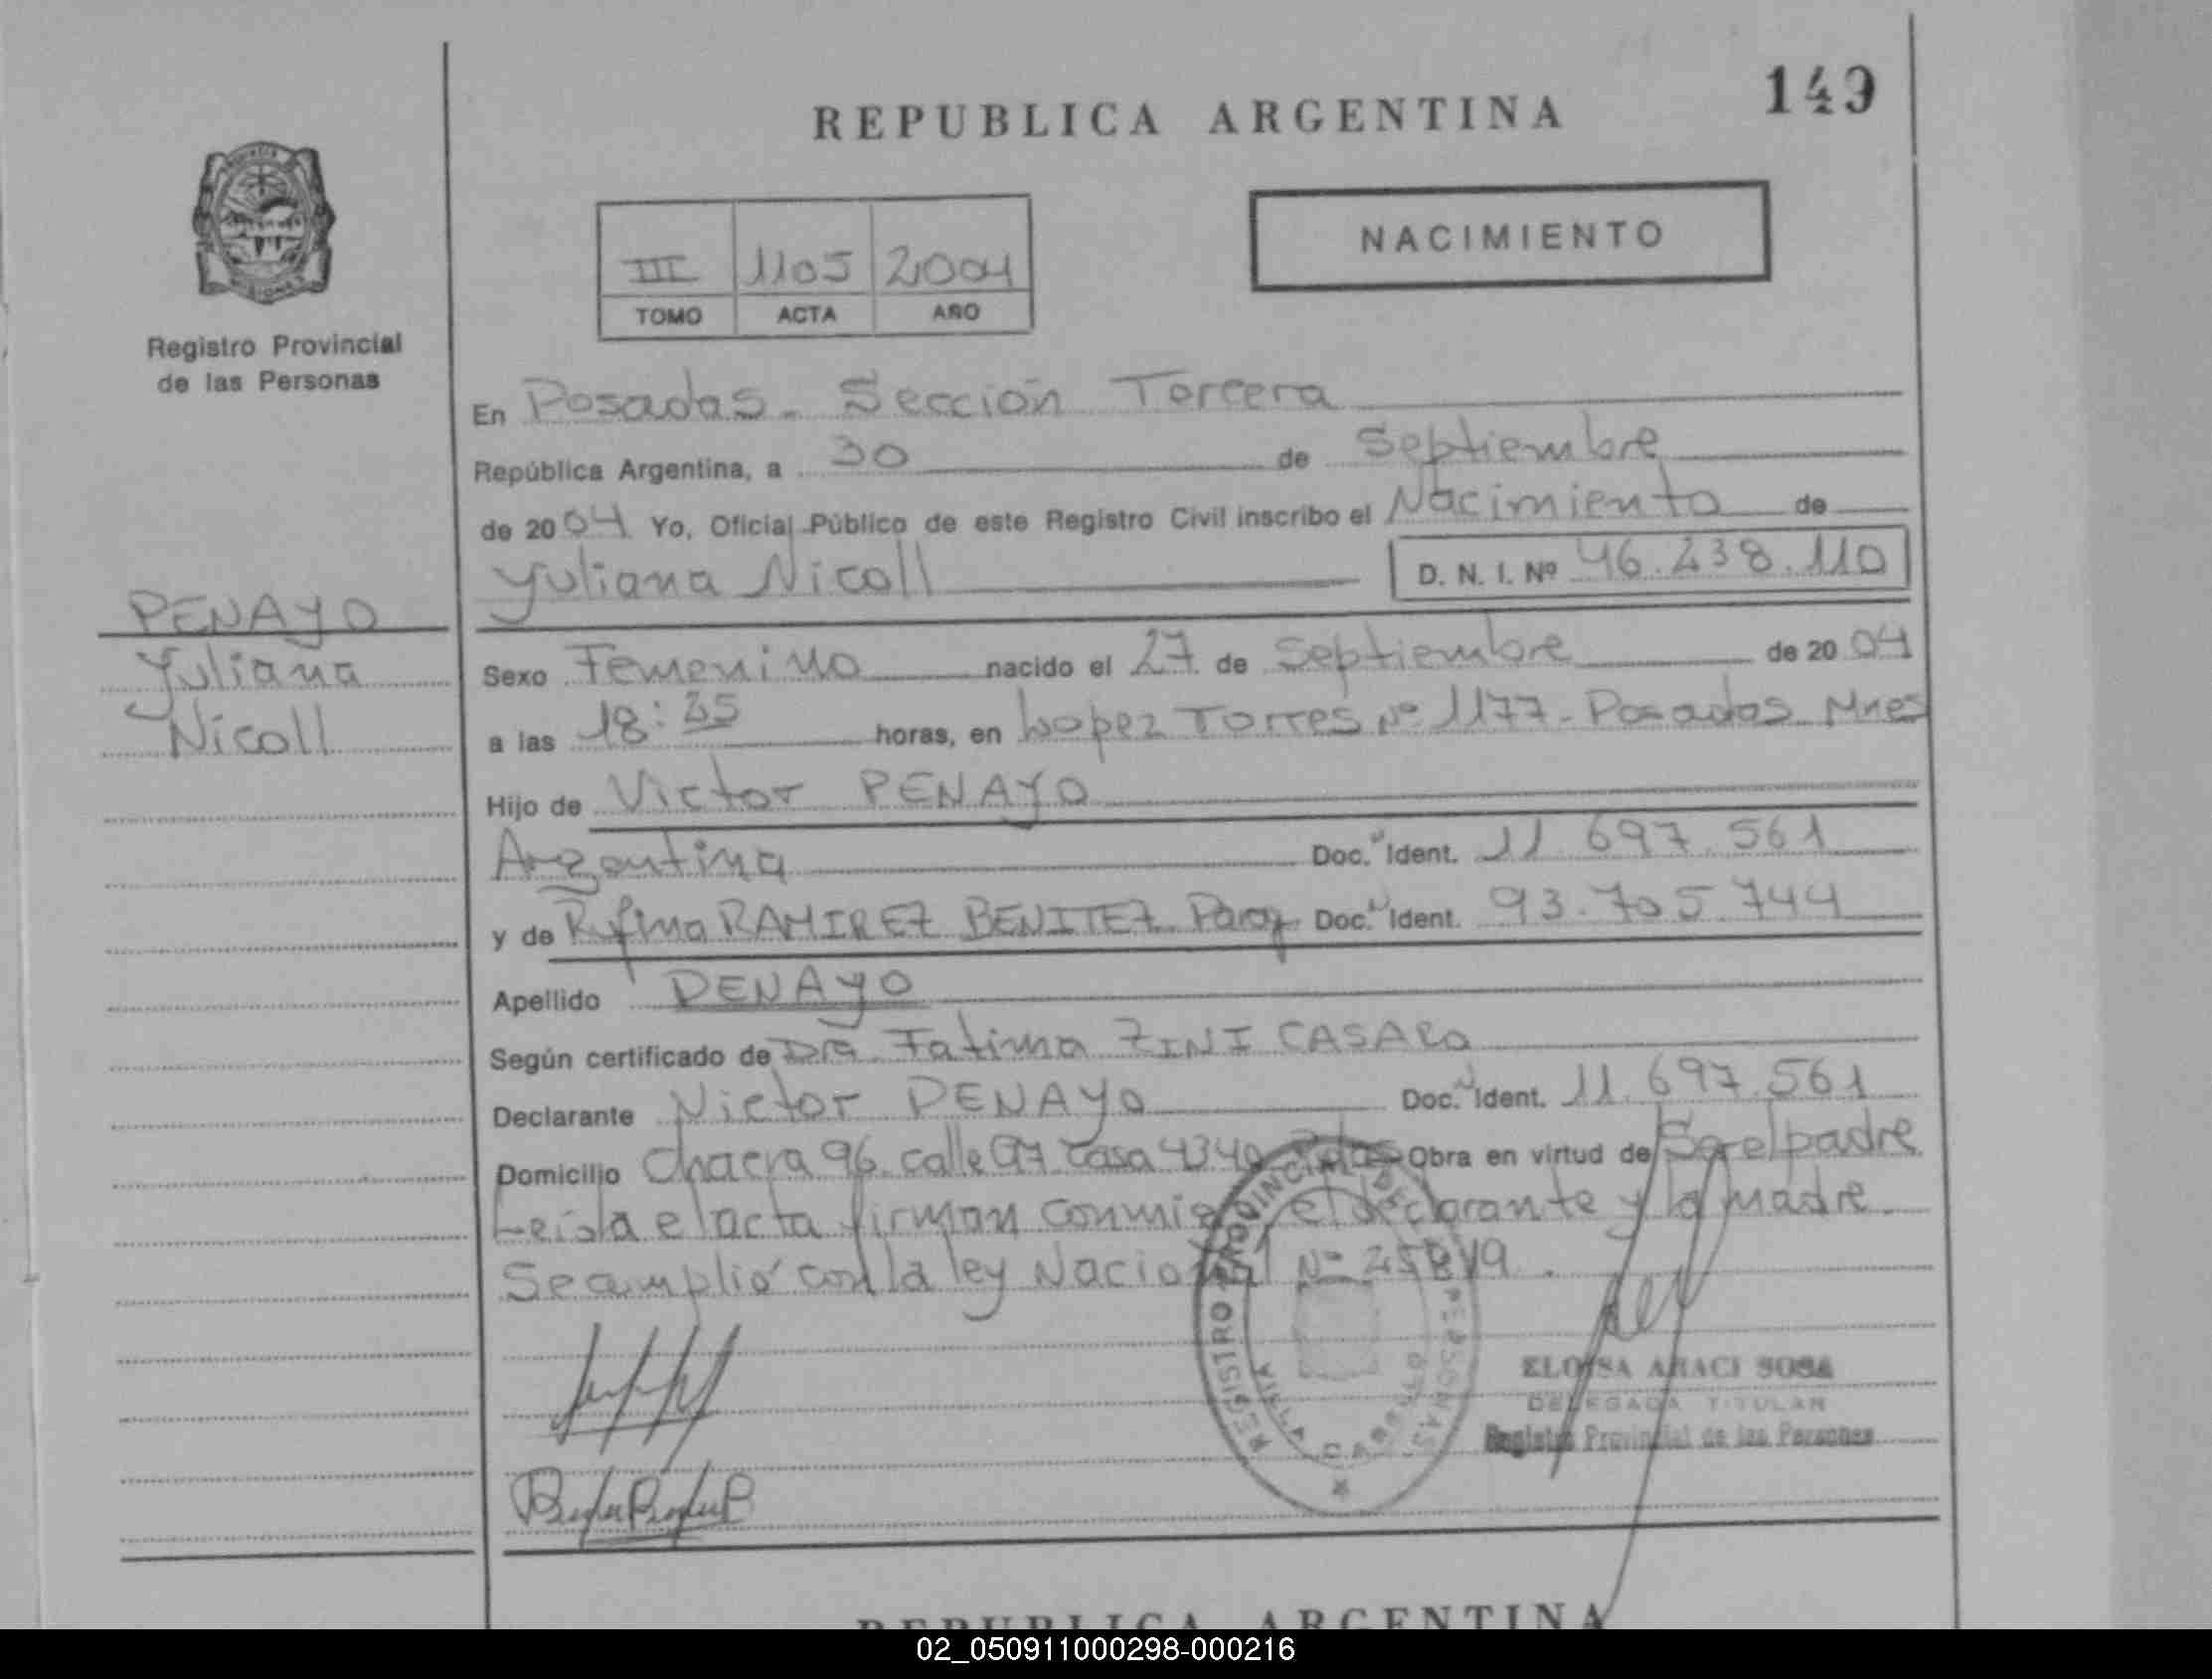 REPUBLICA ARGENTINA
149
NACIMIENTO
III 1105 2004
TOMO ACTA AÑO
Registro Provincial
de las Personas
En Posadas. Sección Tercera
República Argentina, a 30 de Septiembre
de 2004 Yo, Oficial Público de este Registro Civil inscribo el Nacimiento de
Yuliana Nicoll D. N. I. Nº 46.238.110
PENAYO
Yuliana
Nicoll
Sexo Femenino nacido el 27 de Septiembre de 2004
a las 18:35 horas, en Lopez Torres Nº 1177 - Posadas Mnes
Hijo de Victor PENAYO
Argentina Doc. Ident. 11 697 561
y de Rufina RAMIREZ BENITEZ Parag Doc. Ident. 93.705.744
Apellido PENAYO
Según certificado de Dra Fatima ZINI CASARO
Declarante Victor PENAYO Doc. Ident. 11.697.561
Domicilio Chacra 96 calle 97 casa 4340 Pdas Obra en virtud de Ser el padre
Leída el acta firman conmigo el declarante y la madre.
Se cumplió con la ley Nacional Nº
REGISTRO PROVINCIAL DE LAS PERSONAS
ELOISA ARACI SOSA
DELEGADA TITULAR
Registro Provincial de las Personas
REPUBLICA ARGENTINA
02_050911000298-000216